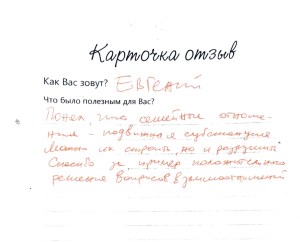 Карточка отзыв
Как Вас зовут? ЕВГЕНИЙ
Что было полезным для Вас?
Понял, что семейные отноше-
ния - подвижная субстанция
Можно их строить, но и разрушить
Спасибо за пример положительно
решения вопросов взаимоотношений